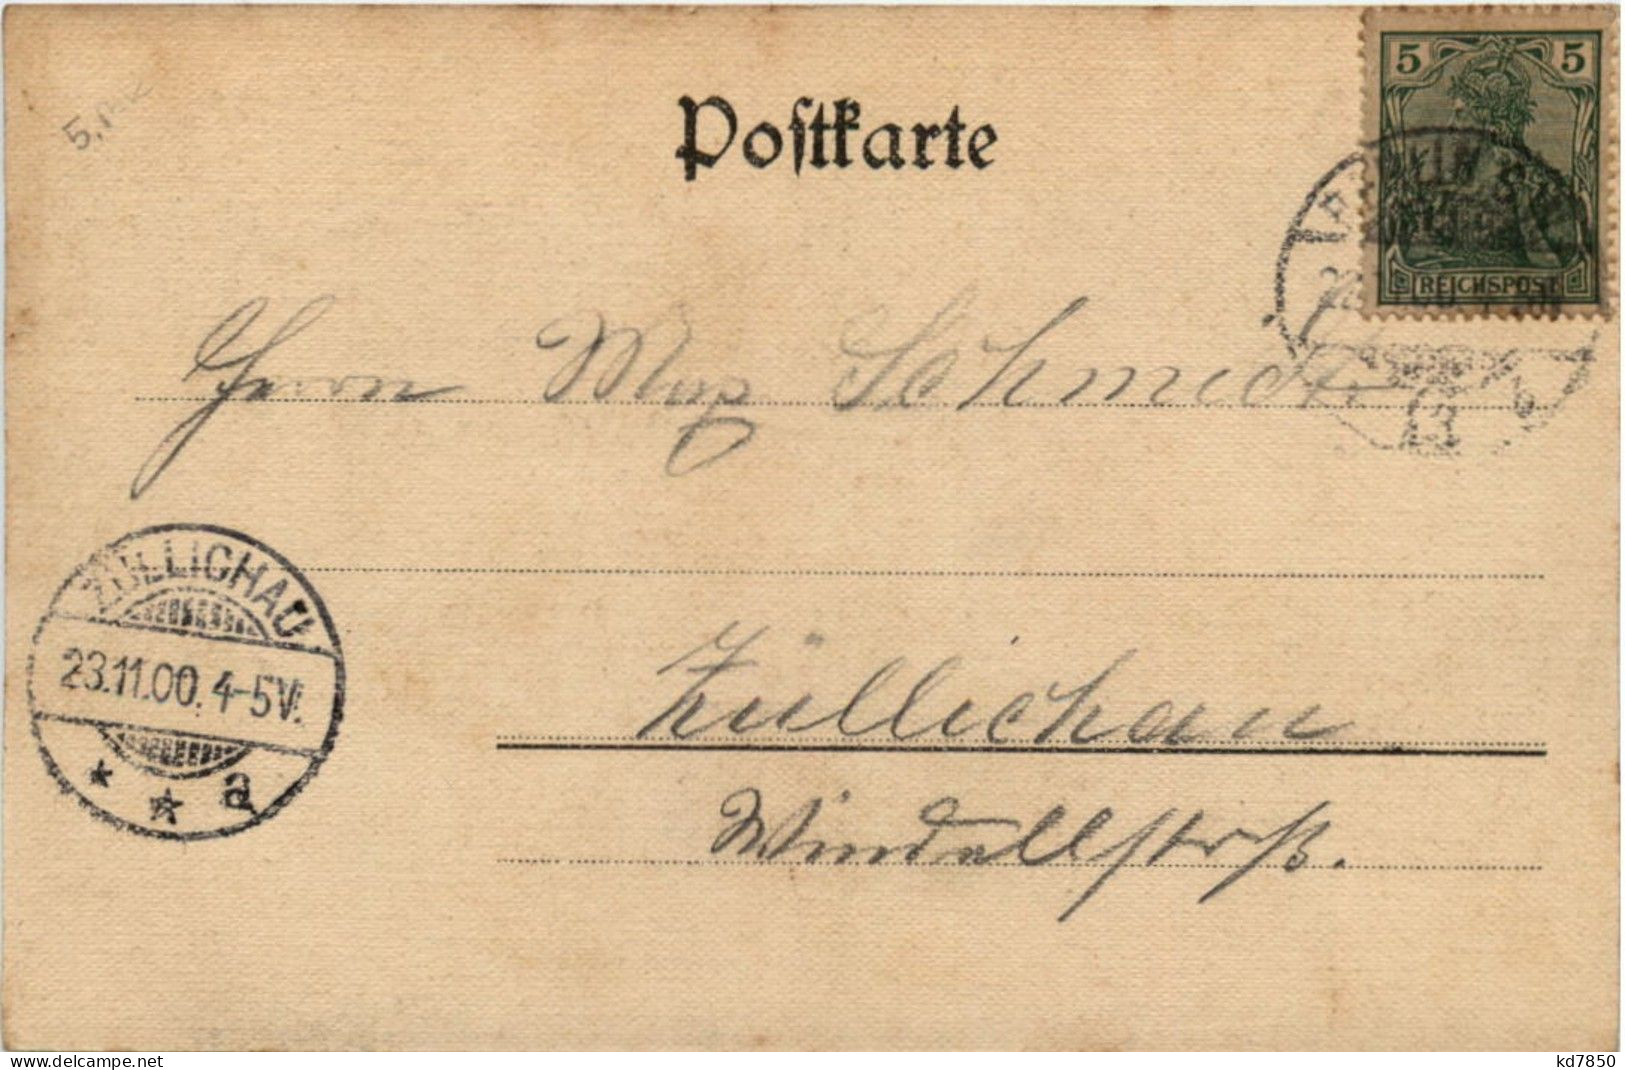 5 5
Postkarte
5,
REICHSPOST
Herrn Max Schmidt
ZÜLLICHAU
23.11.00. 4-5V.
* * a
Züllichau
www.delcampe.net
kd7850